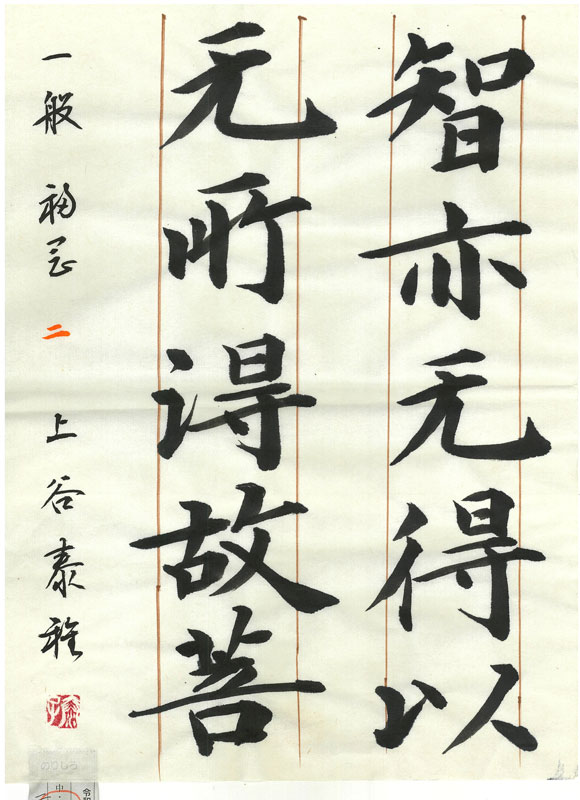 智亦无得以
无所得故菩
一般 初段 二 上谷泰雅
のりしろ